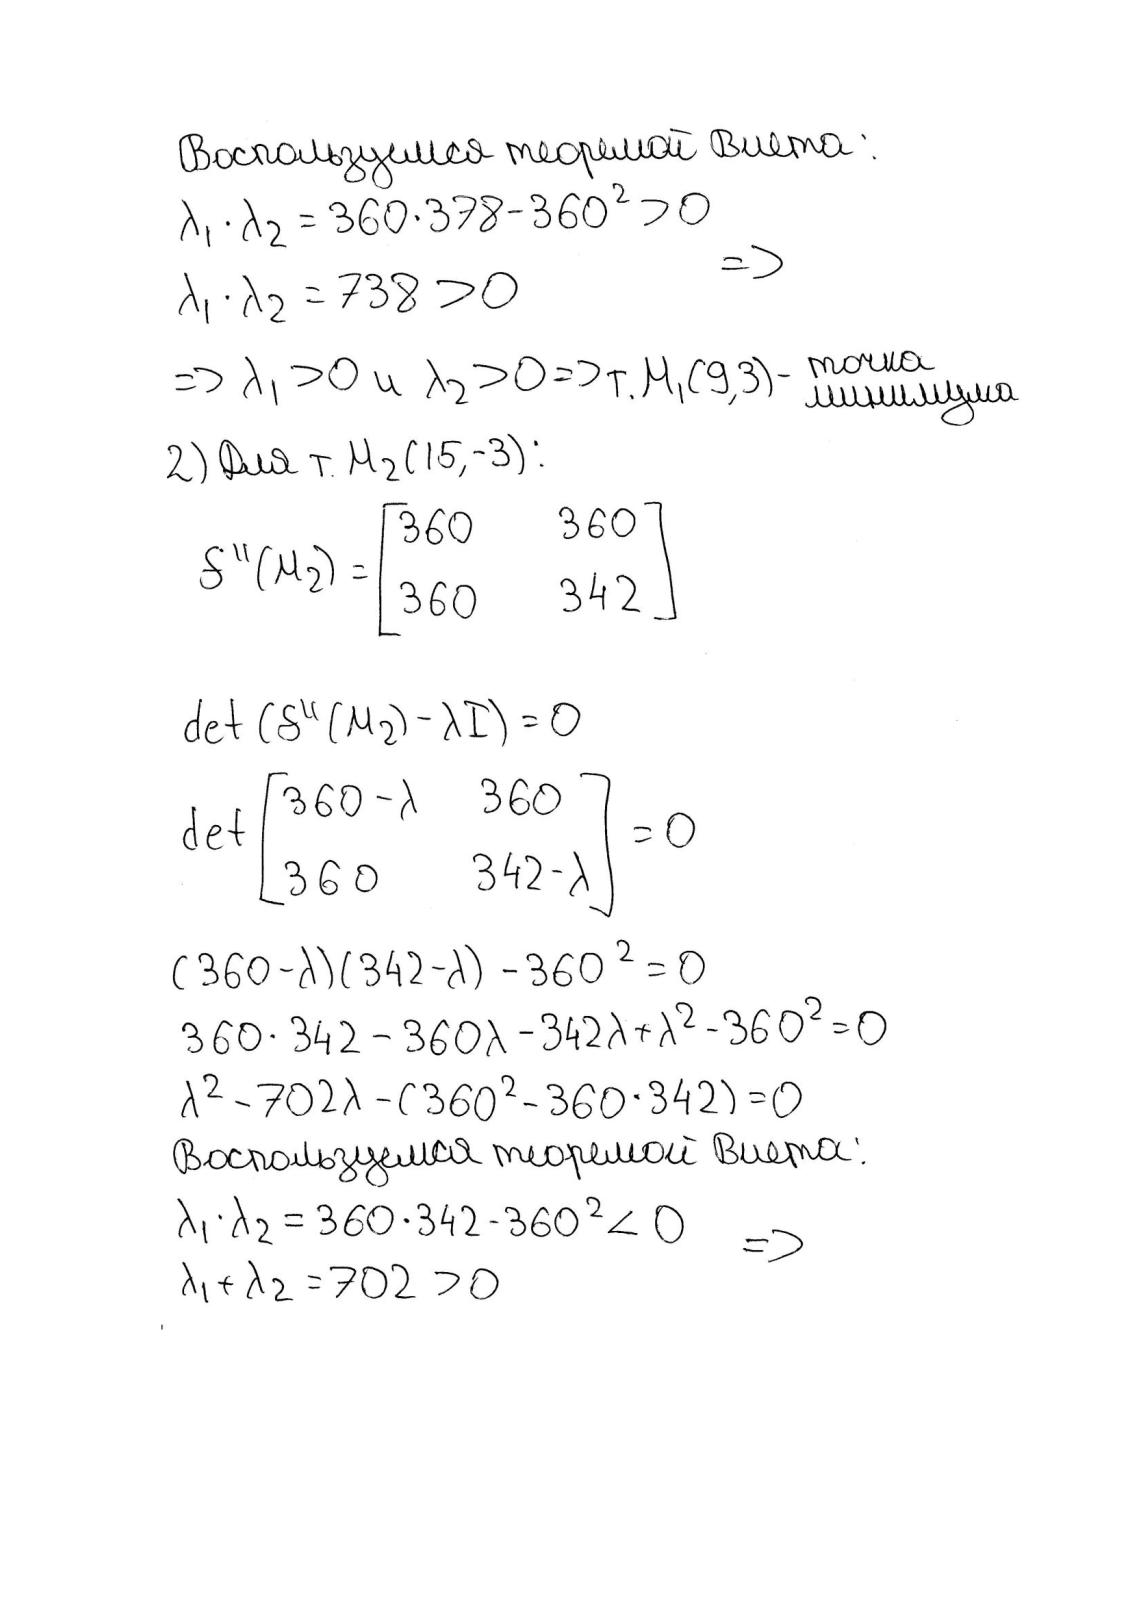 Воспользуемся теоремой Виета:
λ₁·λ₂ = 360·378-360² > 0
=>
λ₁·λ₂ = 738 > 0
=> λ₁ > 0 и λ₂ > 0 => т. M₁(9,3) - точка
минимума
2) Для т. M₂(15,-3):
f''(M₂) = [360 360
360 342]
det(f''(M₂)-λI) = 0
det [360-λ 360
360 342-λ] = 0
(360-λ)(342-λ) - 360² = 0
360·342 - 360λ - 342λ + λ² - 360² = 0
λ² - 702λ - (360² - 360·342) = 0
Воспользуемся теоремой Виета:
λ₁·λ₂ = 360·342-360² < 0
=>
λ₁+λ₂ = 702 > 0